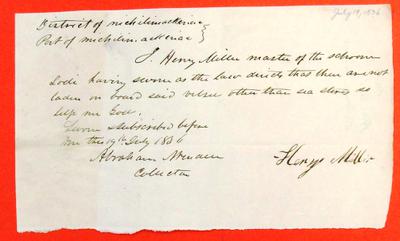 July 19, 1836
District of Michilimackinac
Port of Michilimackinac
I, Henry Miller master of the schooner
Lodi having sworn as the law directs that there are not
laden on board said vessel other than sea stores so
help me God.
Sworn & Subscribed before
me this 19th July 183
Abraham Wendell
Collector
Henry Miller